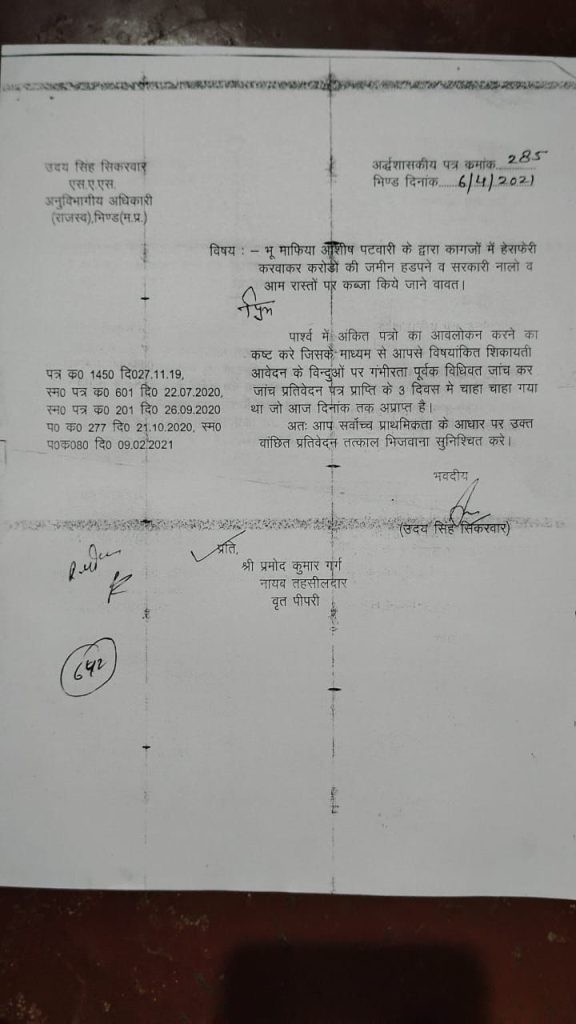 उदय सिंह सिकरवार
एस.ए.एस.
अनुविभागीय अधिकारी
(राजस्व),भिण्ड(म.प्र.)
अर्द्धशासकीय पत्र कमांक 285
भिण्ड दिनांक 6/4/2021
विषय : – भू माफिया आशीष पटवारी के द्वारा कागजों में हेराफेरी
करवाकर करोडों की जमीन हडपने व सरकारी नालो व
आम रास्तों पर कब्जा किये जाने वावत।
पार्श्व में अंकित पत्रो का आवलोकन करने का
कष्ट करे जिसके माध्यम से आपसे विषयांकित शिकायती
आवेदन के विन्दुओं पर गंभीरता पूर्वक विधिवत जांच कर
जांच प्रतिवेदन पत्र प्राप्ति के 3 दिवस मे चाहा चाहा गया
था जो आज दिनांक तक अप्राप्त है।
अतः आप सर्वोच्च प्राथमिकता के आधार पर उक्त
वांछित प्रतिवेदन तत्काल भिजवाना सुनिश्चित करे।
पत्र क0 1450 दि027.11.19,
स्म0 पत्र क0 601 दि0 22.07.2020,
स्म0 पत्र क0 201 दि0 26.09.2020
प0 क0 277 दि0 21.10.2020, स्म0
प0क080 दि0 09.02.2021
भवदीय
(उदय सिंह सिकरवार)
प्रति,
श्री प्रमोद कुमार गर्ग
नायब तहसीलदार
वृत पीपरी